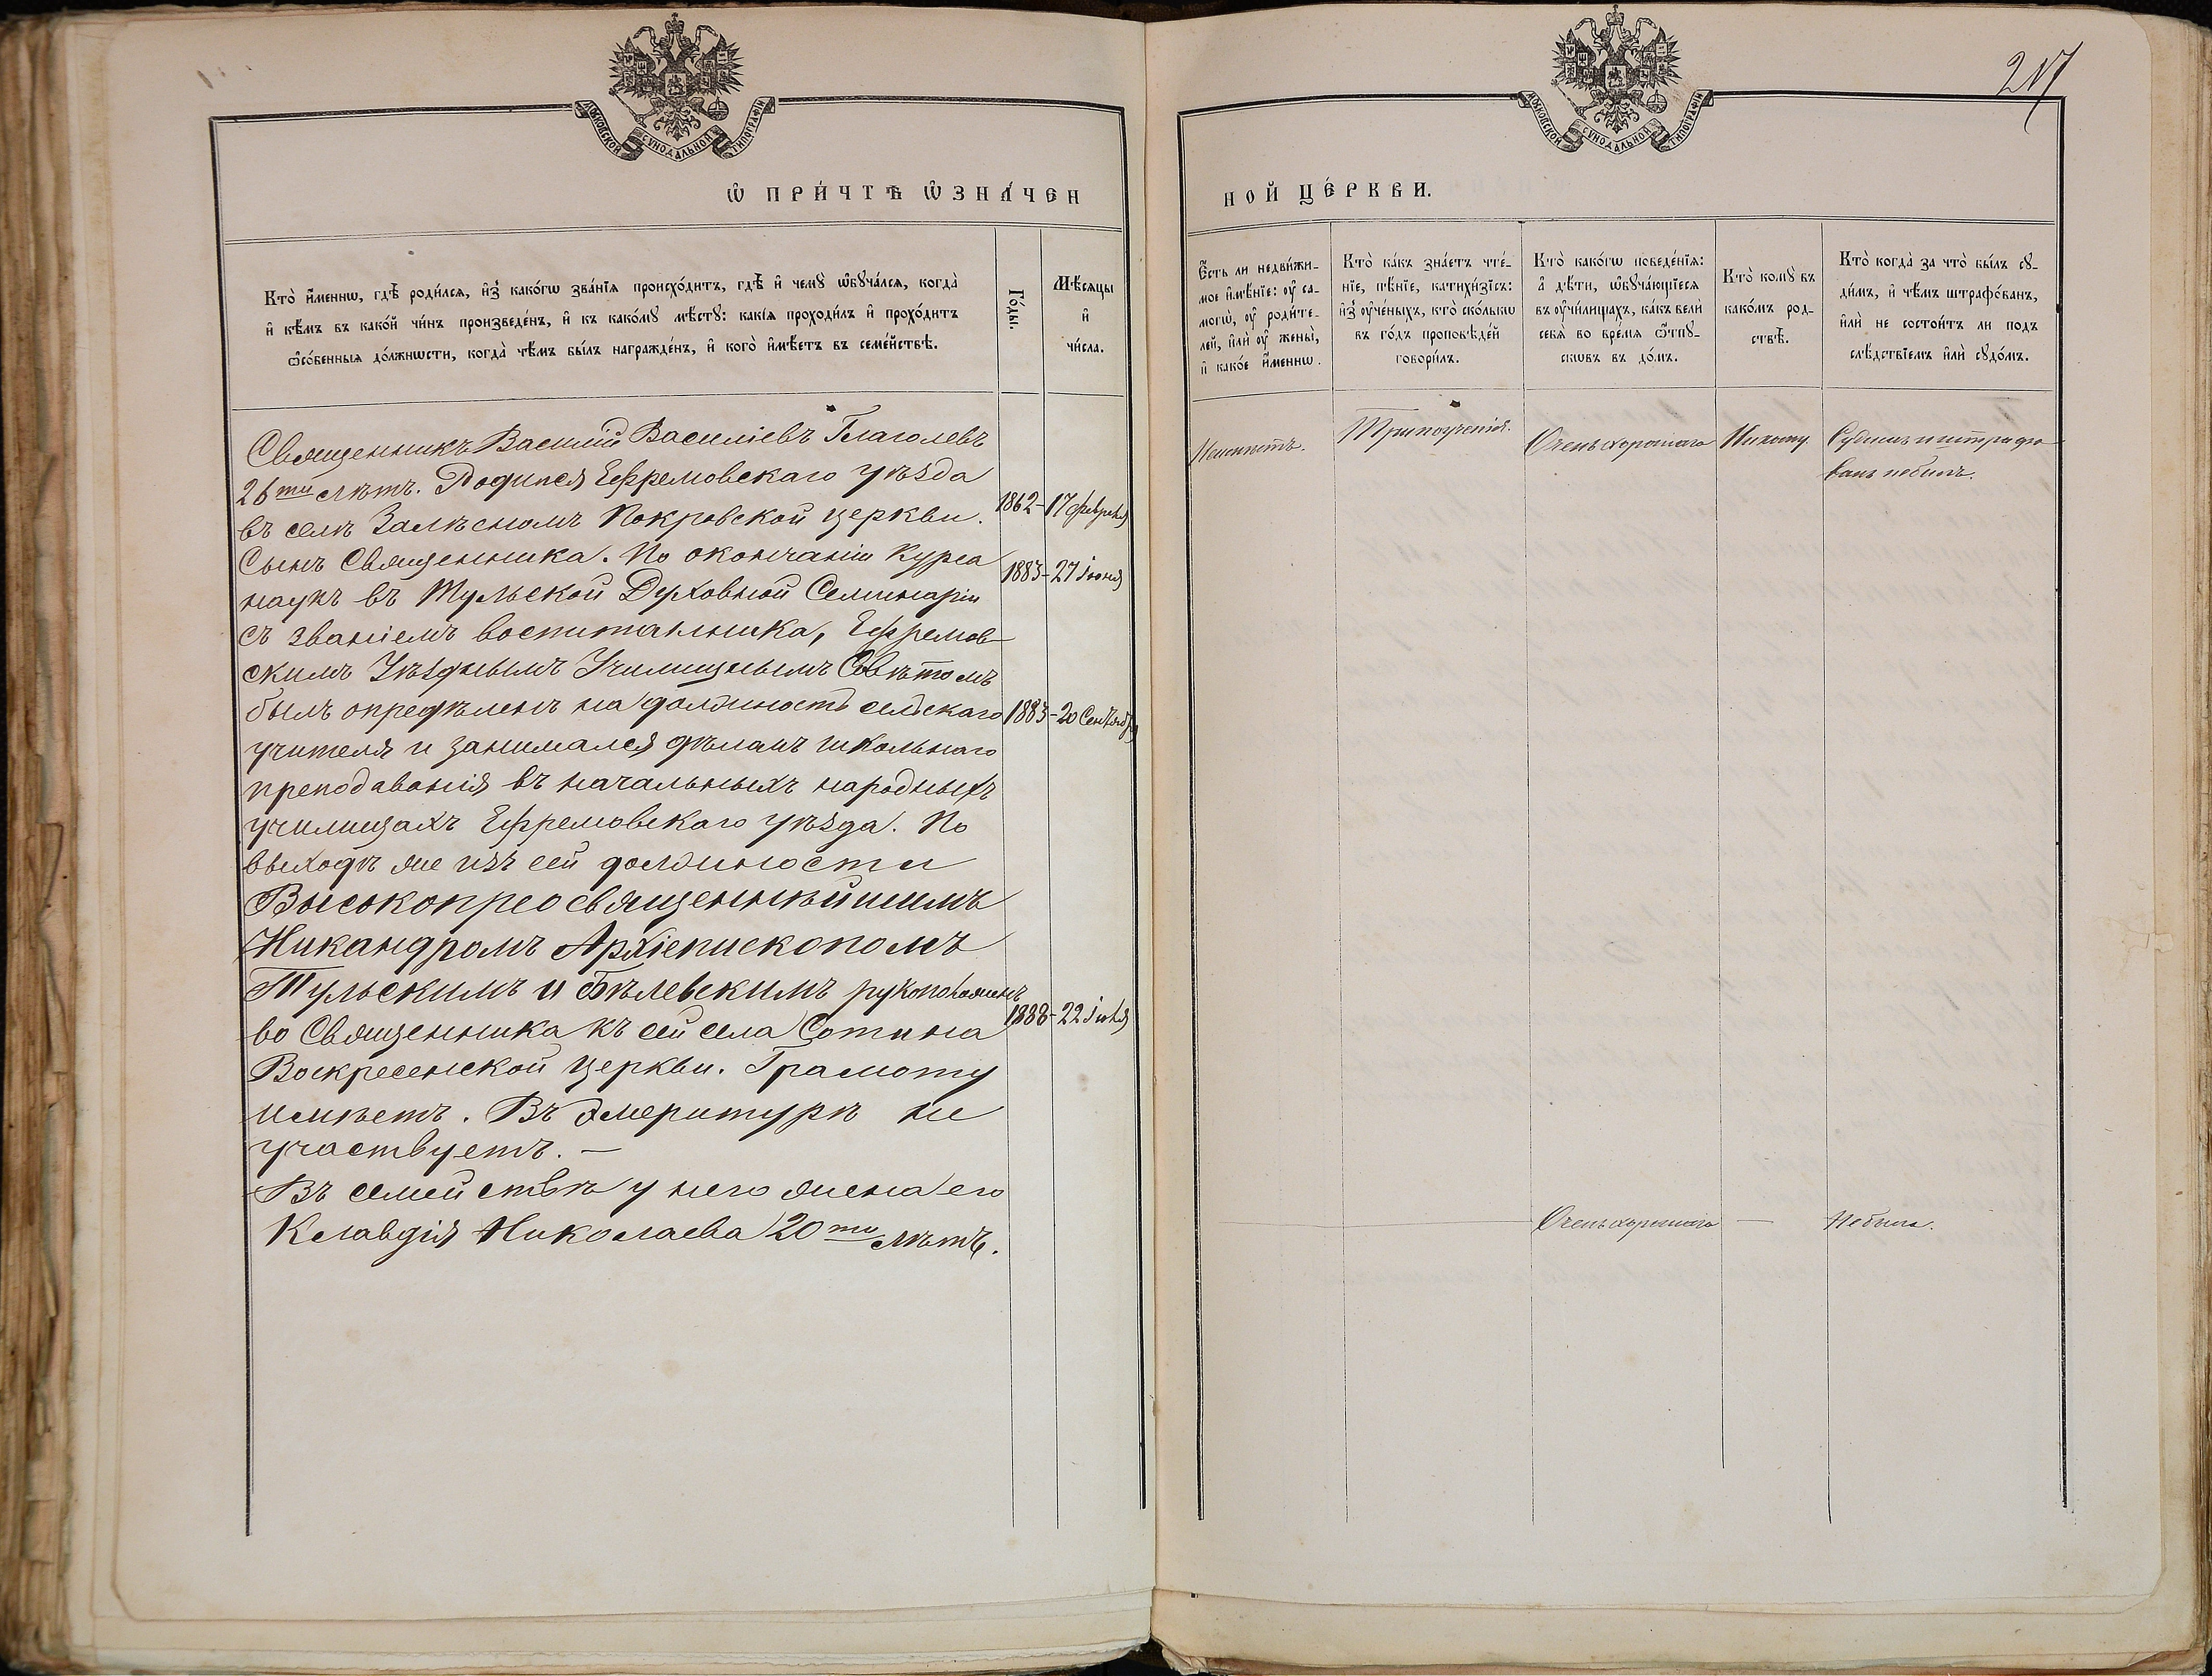 МОСКОВСКОЙ СѴНОДАЛЬНОЙ ТИПОГРАФІИ
Ѡ ПРИ́ЧТѢ ѠЗНА́ЧЕН
Кто̀ и҆́меннѡ, гдѣ̀ роди́лсѧ, и҆з̾ како́гѡ зва́нїѧ происхо́дитъ, гдѣ̀ и҆ чемꙋ̀ ѡ҆бꙋча́лсѧ, когда̀
и҆ кѣ́мъ въ како́й чи́нъ произведе́нъ, и҆ къ како́мꙋ мѣ́стꙋ: какі̑ѧ проходи́лъ и҆ прохо́дитъ
ѻ҆со́бенныѧ до́лжнѡсти, когда̀ чѣ́мъ бы́лъ награжде́нъ, и҆ кого̀ и҆мѣ́етъ въ семе́йствѣ.
Го́ды.
Мѣ́сѧцы
и҆
чи́сла.
Священникъ Василій Василіевъ Глаголевъ
26ти лѣтъ. Родился Ефремовскаго уѣзда
въ селѣ Залѣсномъ Покровской церкви. 1862 – 17 февраля
Сынъ Священника. По окончаніи Курса
наукъ въ Тульской Духовной Семинаріи 1883 – 27 Іюня
съ званіемъ воспитанника, Ефремов-
скимъ Уѣзднымъ Училищнымъ Совѣтомъ
былъ опредѣленъ на должность сельскаго 1883 – 20 Сентября
учителя и занимался дѣломъ школьнаго
преподаванія въ начальныхъ народныхъ
училищахъ Ефремовскаго уѣзда. По
выходѣ же изъ сей должности
Высокопреосвященнѣйшимъ
Никандромъ Архіепископомъ
Тульскимъ и Бѣлевскимъ рукоположенъ
во Священника къ сей села Сотина 1888 – 22 Іюля
Воскресенской церкви. Грамоту
имѣетъ. Въ эмеритурѣ не
участвуетъ. —
Въ семействѣ у него жена его
Клавдія Николаева 20ти лѣтъ.
217
МОСКОВСКОЙ СѴНОДАЛЬНОЙ ТИПОГРАФІИ
НОЙ ЦЕ́РКВИ.
Е҆́сть ли недви́жи-
мое и҆мѣ́нїе: оу҆ са-
могѡ̀, оу҆ роди́те-
лей, и҆лѝ оу҆ жены̀,
и҆ како́е и҆́меннѡ.
Кто̀ ка́къ зна́етъ чте́-
нїе, пѣ́нїе, катихи́зїсъ:
и҆з̾ оу҆че́ныхъ, кто̀ ско́лькѡ
въ го́дъ проповѣ́дей
говори́лъ.
Кто̀ како́гѡ поведе́нїѧ:
а҆ дѣ́ти, ѡ҆бꙋча́ющїесѧ
въ оу҆чи́лищахъ, ка́къ велѝ
себѧ̀ во вре́мѧ ѿпꙋ-
сковъ въ до́мъ.
Кто̀ комꙋ̀ въ
како́мъ род-
ствѣ̀.
Кто̀ когда̀ за что̀ бы́лъ сꙋ-
ди́мъ, и҆ чѣ́мъ штрафо́ванъ,
и҆лѝ не состои́тъ ли подъ
слѣ́дствїемъ и҆лѝ сꙋдо́мъ.
Неимѣетъ.
Три поученія.
Очень хорошаго
Никому.
Судимъ и штрафо-
ванъ небылъ.
Очень хорошаго — Небыла.